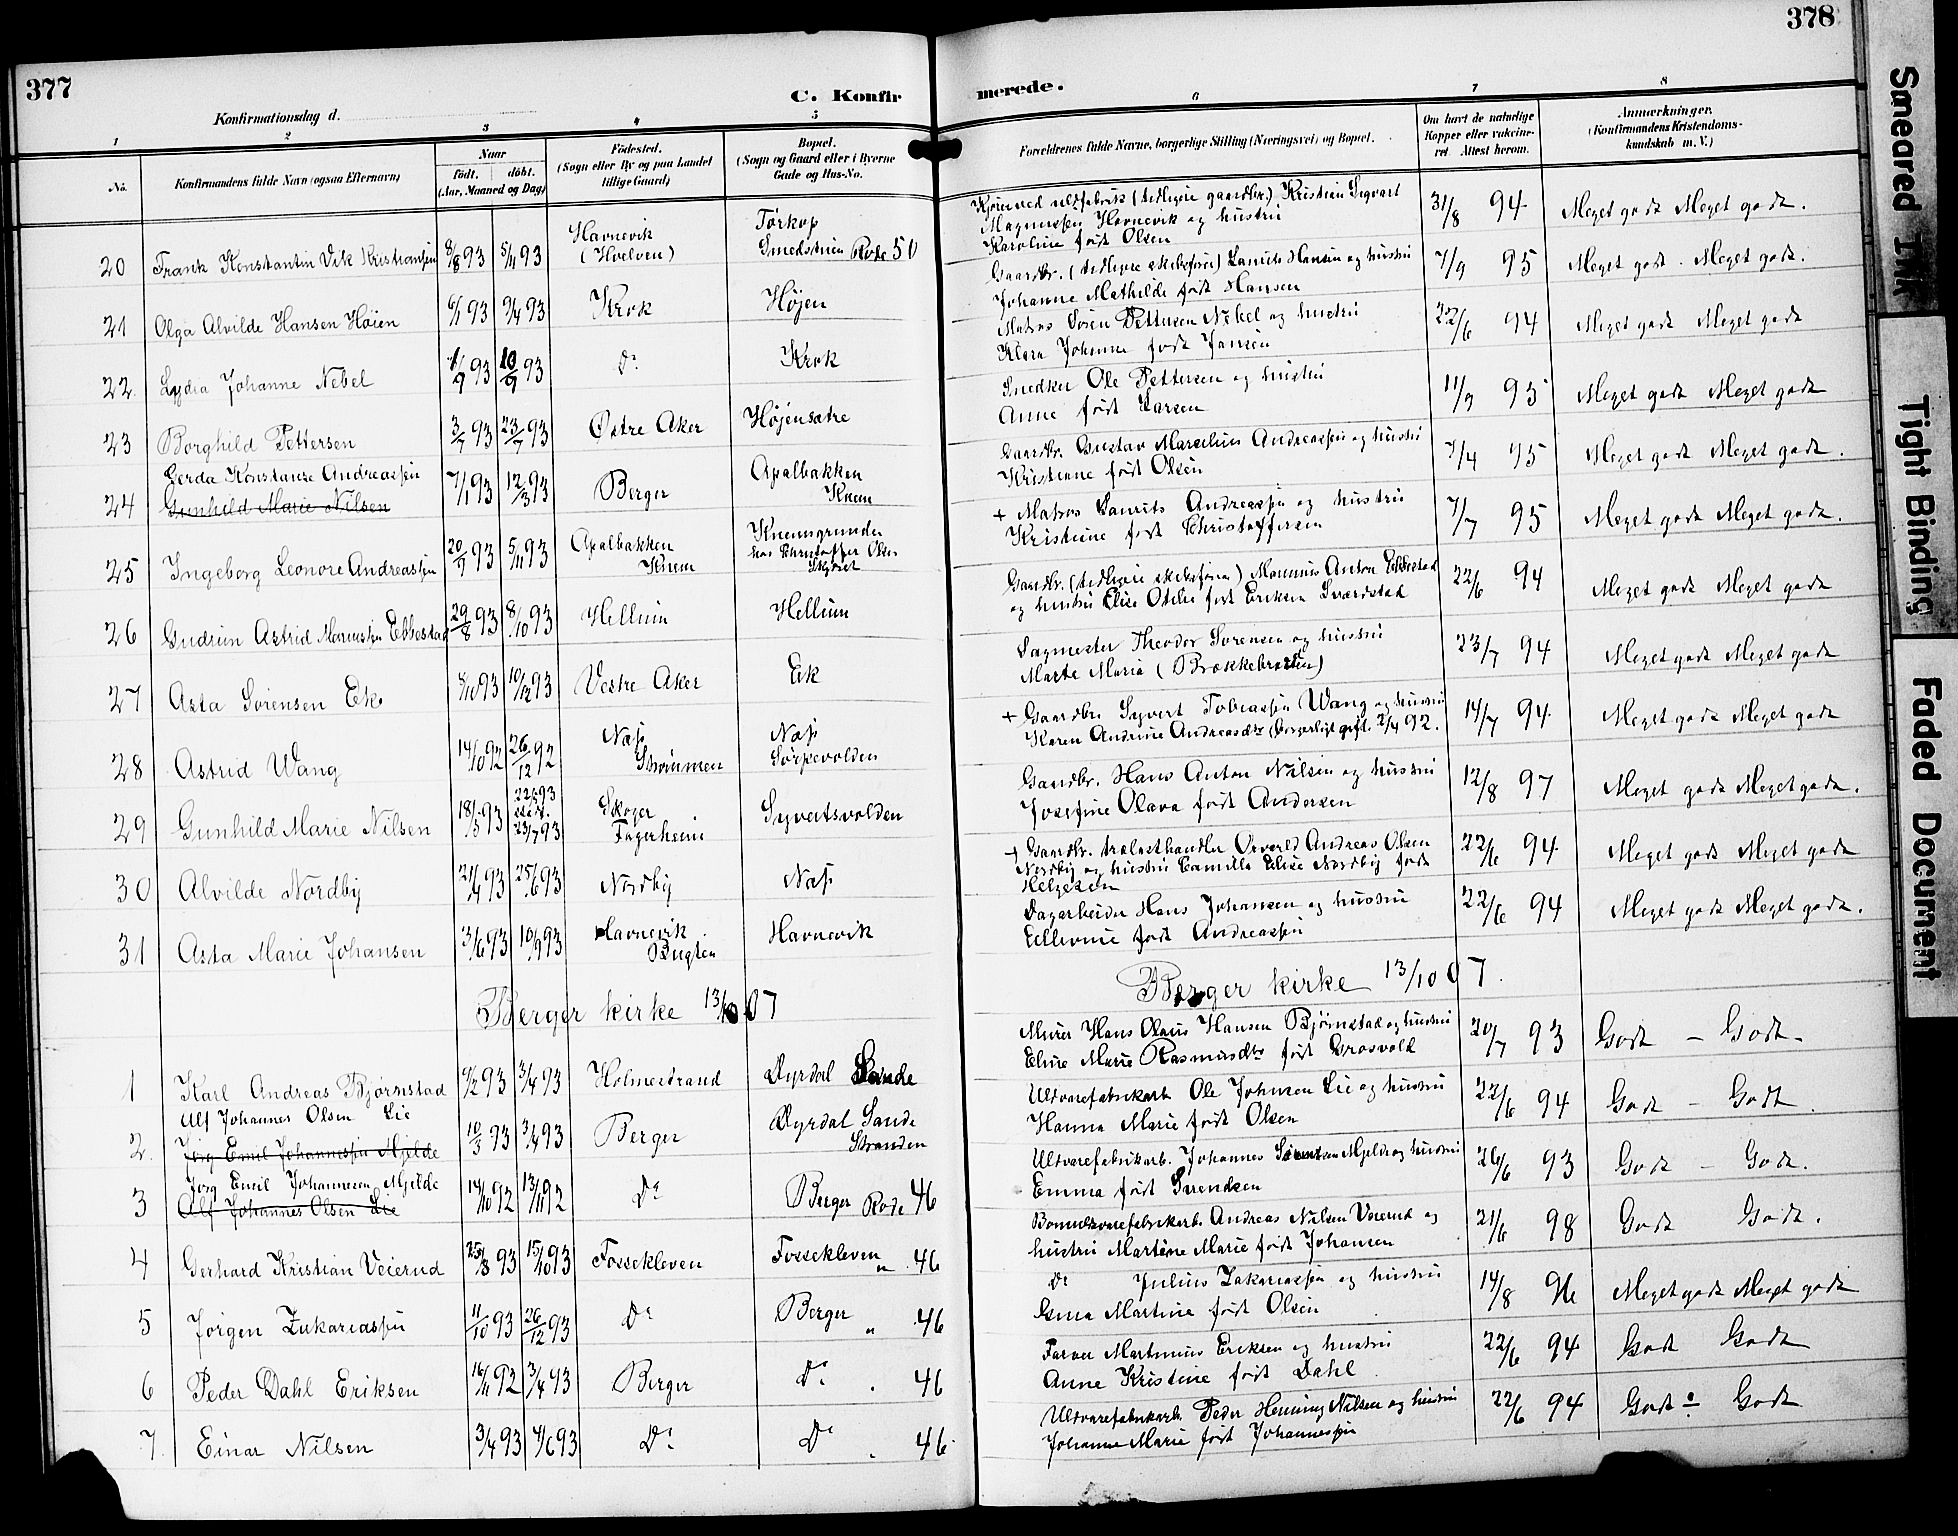 377
C. Konfir
Konfirmationsdag d.
1 2 3 4 5
No.
Konfirmandens fulde Navn (ogsaa Efternavn)
Naar
født. døbt.
(Aar, Maaned og Dag)
Fødested.
(Sogn eller By og paa Landet
tillige Gaard)
Bopæl.
(Sogn og Gaard eller i Byerne
Gade og Hus-No.
20 Frank Konstantin Vik Kristiansen 8/8 93 5/11 93 Havnevik (Hvelven) Torkop Smedstuen Rode 50
21 Olga Alvilde Hansen Høien 6/1 93 9/4 93 Krok Højen
22 Lydia Johanne Nebel 1/9 93 10/9 93 Do Krok
23 Borghild Pettersen 3/7 93 23/7 93 Østre Aker Højensætre
Gerda Konstanse Andreassen
24 Gunhild Marie Nilsen 7/1 93 12/3 93 Berger Apalbakken Knem
25 Ingeborg Leonore Andreassen 20/9 93 5/11 93 Apalbakken Knem Knemsgrunden hos Christoffer Olsen
26 Gudrun Astrid Marensen Ebbestad 29/8 93 8/10 93 Hellum Hellum
27 Asta Sørensen Ek 8/10 93 10/12 93 Vestre Aker Ek
28 Astrid Wang 14/10 92 26/12 92 Næss Strømmen Næss Sørpevolden
29 Gunhild Marie Nilsen 18/5 93 23/7 93 Skoger Fagerheim Syvertsvolden
30 Alvilde Nordby 21/4 93 25/6 93 Nordby Næss
31 Asta Marie Johansen 3/6 93 10/9 93 Havnevik Bugten Havnevik
Berger kirke 13/10 07
1 Karl Andreas Bjørnstad 9/2 93 3/4 93 Holmestrand Dyrdal Sande
Ulf Johannes Olsen Lie
2. Jørg Emil Johannessen Mjelde 10/3 93 3/4 93 Berger Dyrdal Sande Stranden
Jørg Emil Johannesen Mjelde
3 Alf Johannes Olsen Lie 14/10 92 13/11 92 Do Berger Rode 46
4 Gerhard Kristian Veierud 25/8 93 15/10 93 Fossekleven Fossekleven " 46
5 Jørgen Zakariassen 11/10 93 26/12 93 Do Berger " 46
6 Peder Dahl Eriksen 16/11 92 3/4 93 Berger Do 46
7. Einar Nilsen 3/4 93 4/6 93 Do Do 46
378
merede.
6 7 8
Forældrenes fulde Navne, borgerlige Stilling (Næringsvei) og Bopæl.
Om havt de naturlige
Kopper eller vaccine-
ret. Attest herom.
Anmærkninger.
(Konfirmandens Kristendoms-
kundskab m. V.)
Kjører ved uldfabrik (tidligere gaardbr.) Kristian Sigvart
Magnussen Havnevik og hustru
Karoline født Olsen 31/8 94 Meget godt Meget godt.
Gaardbr. (tidligere skibsfører) Laurits Hansen og hustru
Johanne Mathilde født Hansen 7/9 95 Meget godt. Meget godt.
Matros Søren Pettersen Nebel og hustru
Klara Johanne født Jansen 22/6 94 Meget godt Meget godt
Snedker Ole Pettersen og hustru
Anne født Larsen 11/9 95 Meget godt Meget godt
Gaardbr. Gustav Marselius Andreassen og hustru
Kristiane født Olsen 7/4 95 Meget godt Meget godt.
+ Matros Laurits Andreassen og hustru
Kristine født Christoffersen 7/7 95 Meget godt Meget godt.
Gaardbr. (tidligere skibsfører) Marinus Anton Ebbestad
og hustru Elise Otilie født Eriksen Sværdstad 22/6 94 Meget godt Meget godt
Sagmester Theodor Sørensen og hustru
Marte Maria (Brækkebråten) 23/7 94 Meget godt Meget godt
+ Gaardbr. Syvert Tobiassen Wang og hustru
Karen Andrine Andreasdtr (borgerligt gift 2/4 92. 14/7 94 Meget godt Meget godt
Gaardbr. Hans Anton Nilsen og hustru
Josefine Olava født Andersen 12/8 97 Meget godt Meget godt.
+ Gaardbr. trælasthandler Andreas Olsen
Nordby og hustru Camilla Elise Nordby født
Helgesen 22/6 94 Meget godt Meget godt
Dagarbeider Hans Johansen og hustru
Ellevine født Andreassen 22/6 94 Meget godt Meget godt.
Berger kirke 13/10 07.
Murer Hans Olaus Hansen Bjørnstad og hustru
Eline Marie Rasmusdtr født Grosvold 20/7 93 Godt – Godt.
Uldvarefabrikarb. Ole Johnsen Lie og hustru
Hanna Marie født Olsen 22/6 94 Godt – Godt.
Uldvarefabrikarb. Johannes Mjelde og hustru
Emma født Svendsen 26/6 93 Godt – Godt.
Bomuldsvarefabrikarb. Andreas Nilsen Veierud og
hustru Martine Marie født Johansen 21/6 98 Godt Godt.
Do Julius Zakariassen og hustru
Gina Martine født Olsen 14/8 96 Meget godt Meget godt
Farver Martinius Eriksen og hustru
Anne Kristine født Dahl 22/6 94 Godt Godt
Uldvarefabrikarb. Peder Henning Nilsen og hustru
Johanne Marie født Johannessen 22/6 94 Godt Godt
Smeared Ink
Tight Binding
Faded Document